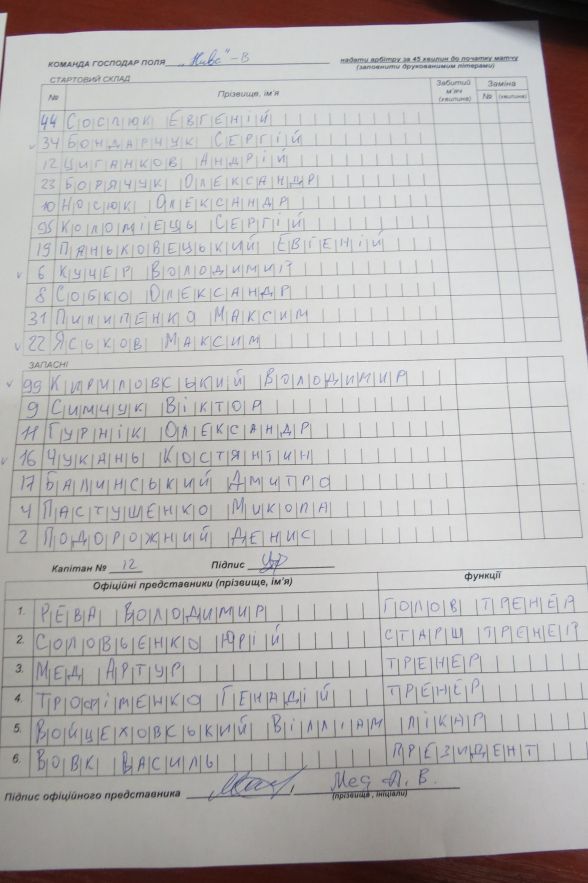 КОМАНДА ГОСПОДАР ПОЛЯ „Нива"-В надати арбітру за 45 хвилин до початку матчу
(заповнити друкованими літерами)
СТАРТОВИЙ СКЛАД
№ Прізвище, ім'я Забитий м'яч (хвилина) Заміна № (хвилина)
44 СОСЛЮК ЕВГЕНІЙ
v 34 БОНДАРЧУК СЕРГІЙ
12 ЦИГАНКОВ АНДРІЙ
23 БОРЯЧУК ОЛЕКСАНДР
10 НОСЮК ОЛЕКСАНДР
95 КОЛОМІЕЦЬ СЕРГІЙ
19 ПАНЬКОВЕЦЬКИЙ ЕВГЕНІЙ
v 6 КУЧЕР ВОЛОДИМИР
8 СОБКО ОЛЕКСАНДР
31 ПИЛИПЕНКО МАКСИМ
v 22 ЯСЬКОВ МАКСИМ
ЗАПАСНІ
v 99 КИРИЛОВСЬКИЙ ВОЛОДИМИР
9 СИМЧУК ВІКТОР
11 ГУРНІК ОЛЕКСАНДР
v 16 ЧУКАНЬ КОСТЯНТИН
17 БАЛИНСЬКИЙ ДМИТРО
4 ПАСТУШЕНКО МИКОЛА
2 ПОДОРОЖНИЙ ДЕНИС
Капітан № 12 Підпис
Офіційні представники (прізвище, ім'я) функції
1. РЕВА ВОЛОДИМИР ГОЛОВ ТРЕНЕР
2. СОЛОВЬЕНКО ЮРІЙ СТАРШ ТРЕНЕР
3. МЕД АРТУР ТРЕНЕР
4. ТРОФІМЕНКО ГЕНАДІЙ ТРЕНЕР
5. ВОЙЦЕХОВСЬКИЙ ВІЛЛІАМ ЛІКАР
6. ВОВК ВАСИЛЬ ПРЕЗИДЕНТ
Підпис офіційного представника , Мед А. В.
(прізвище, ініціали)